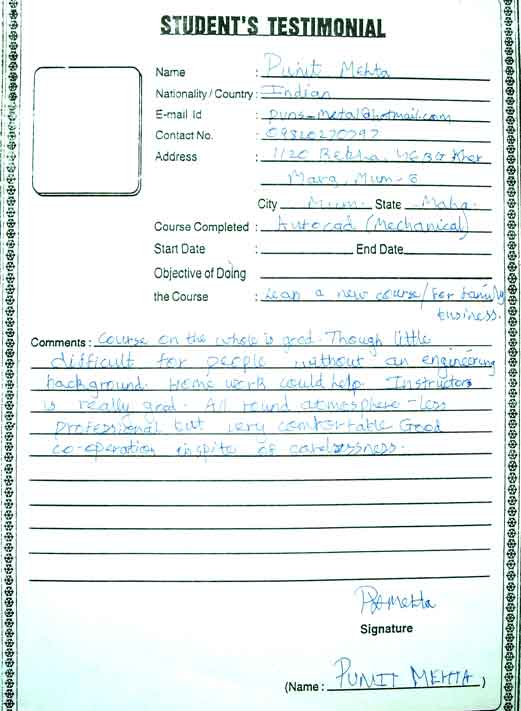 STUDENT'S TESTIMONIAL
Name : Punit Mehta
Nationality / Country : Indian
E-mail Id : puns_metal@hotmail.com
Contact No. : 09820270797
Address : 1120 Rekha, 46 BG Kher
Marg, Mum-6
City Mum State Maha.
Course Completed : Autocad (Mechanical)
Start Date : End Date
Objective of Doing
the Course : Lean a new course/For family
business.
Comments : Course on the whole is good. Though little
difficult for people without an engineering
background. Home work could help. Instructors
is really good. All round atmosphere - less
professional but very comfortable Good
co-operation inspite of carelessness.
Signature
(Name : PUNIT MEHTA )